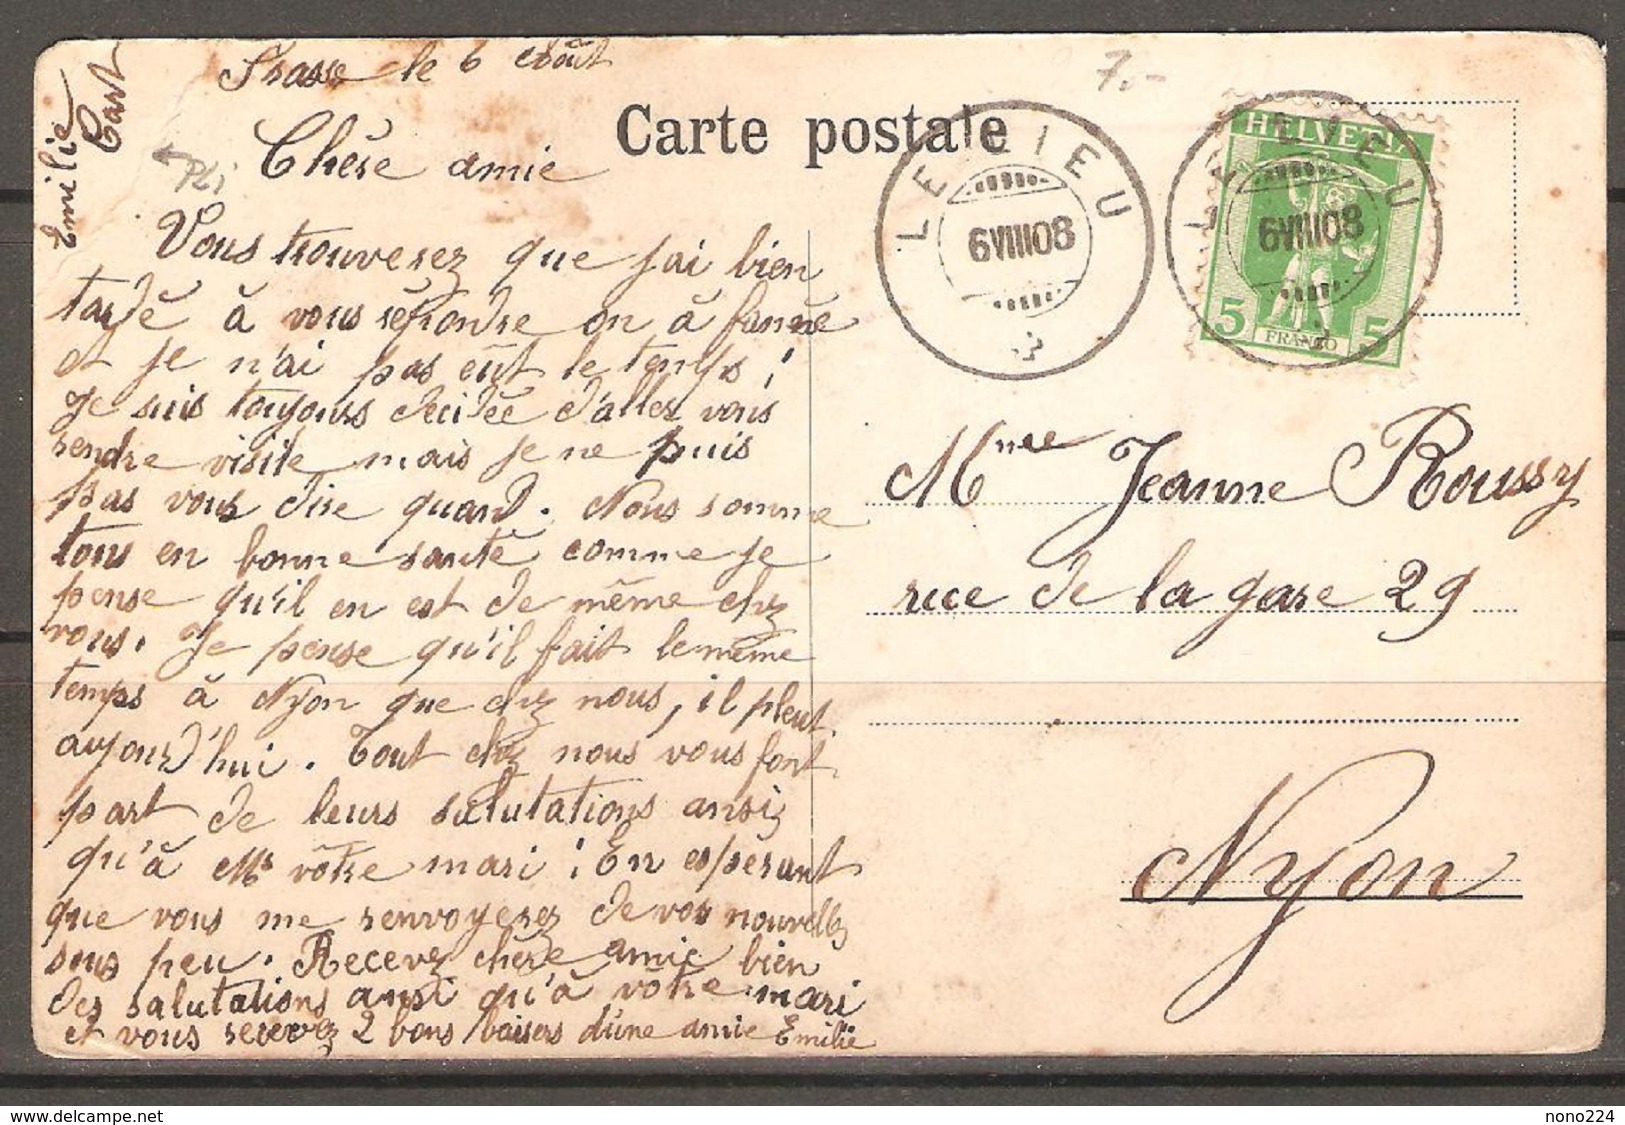 Emilie
Cart
Frasse le 6 août
7.-
Carte postale
Chère amie
Pli
LE LIEU
6VIII08
LE LIEU
6VIII08
HELVETIA
5 5
FRANCO
Vous trouverez que j'ai bien
tardé à vous répondre on à fanné
et je n'ai pas eût le temps ;
Je suis toujours décidée d'aller vous
rendre visite mais je ne puis
pas vous dire quand. Nous somme
tous en bonne santé comme je
pense qu'il en est de même chez
vous. Je pense qu'il fait le même
temps à Nyon que chez nous, il pleut
aujourd'hui. Tout chez nous vous font
part de leurs salutations ansi
qu'à Mr vôtre mari ; En espérant
que vous me renvoyerez de vos nouvelles
sous peu. Recevez chère amie bien
des salutations ansi qu'à vôtre mari
et vous recevez 2 bons baisers d'une amie Emilie
Mme Jeanne Roussy
rue de la gare 29
Nyon
nono224